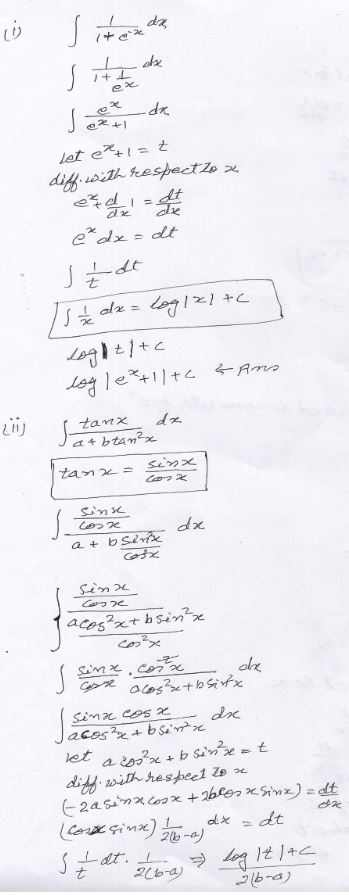 (i) ∫ 1/(1+e^-x) dx
∫ 1/(1+1/e^x) dx
∫ e^x/(e^x+1) dx
Let e^x+1 = t
diff. with respect to x
e^x + d/dx 1 = dt/dx
e^x dx = dt
∫ 1/t dt
∫ 1/x dx = log|x| + c
log|t|+c
log|e^x+1|+c ← Ans
(ii) ∫ tanx/(a+btan²x) dx
tanx = sinx/cosx
∫ (sinx/cosx)/(a + b sin²x/cos²x) dx
∫ (sinx/cosx)/((acos²x+bsin²x)/cos²x)
∫ sinx/cosx · cos²x/(acos²x+bsin²x) dx
∫ sinx cosx/(acos²x+bsin²x) dx
let a cos²x + b sin²x = t
diff. with respect to x
(-2a sinx cosx + 2b cosx sinx) = dt/dx
(cosx sinx) 1/2(b-a) dx = dt
∫ 1/t dt. 1/2(b-a) ⇒ log|t|+c/2(b-a)